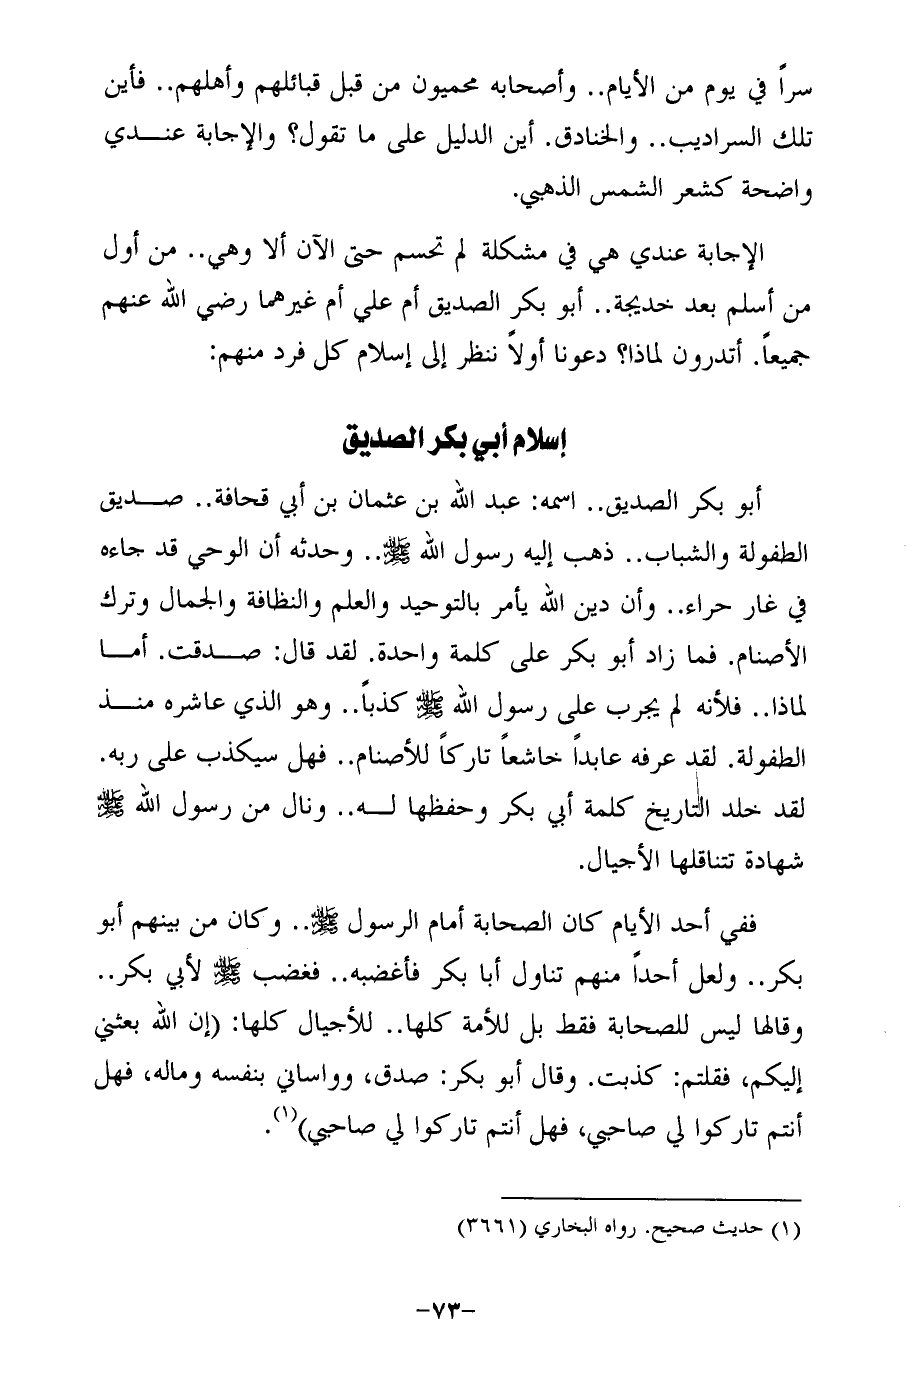 سراً في يوم من الأيام.. وأصحابه محميون من قبل قبائلهم وأهلهم.. فأين
تلك السراديب.. والخنادق. أين الدليل على ما تقول؟ والإجابة عنـــدي
واضحة كشعر الشمس الذهبي.
الإجابة عندي هي في مشكلة لم تحسم حتى الآن ألا وهي.. من أول
من أسلم بعد خديجة.. أبو بكر الصديق أم علي أم غيرهما رضي الله عنهم
جميعاً. أتدرون لماذا؟ دعونا أولاً ننظر إلى إسلام كل فرد منهم:
إسلام أبي بكر الصديق
أبو بكر الصديق.. اسمه: عبد الله بن عثمان بن أبي قحافة.. صـــديق
الطفولة والشباب.. ذهب إليه رسول الله ﷺ.. وحدثه أن الوحي قد جاءه
في غار حراء.. وأن دين الله يأمر بالتوحيد والعلم والنظافة والجمال وترك
الأصنام. فما زاد أبو بكر على كلمة واحدة. لقد قال: صـــدقت. أمـــا
لماذا.. فلأنه لم يجرب على رسول الله ﷺ كذباً.. وهو الذي عاشره منـــذ
الطفولة. لقد عرفه عابداً خاشعاً تاركاً للأصنام.. فهل سيكذب على ربه.
لقد خلد التاريخ كلمة أبي بكر وحفظها لـــه.. ونال من رسول الله ﷺ
شهادة تتناقلها الأجيال.
ففي أحد الأيام كان الصحابة أمام الرسول ﷺ.. وكان من بينهم أبو
بكر.. ولعل أحداً منهم تناول أبا بكر فأغضبه.. فغضب ﷺ لأبي بكر..
وقالها ليس للصحابة فقط بل للأمة كلها.. للأجيال كلها: (إن الله بعثني
إليكم، فقلتم: كذبت. وقال أبو بكر: صدق، وواساني بنفسه وماله، فهل
أنتم تاركوا لي صاحبي، فهل أنتم تاركوا لي صاحبي)(١).
(١) حديث صحيح. رواه البخاري (٣٦٦١)
-٧٣-